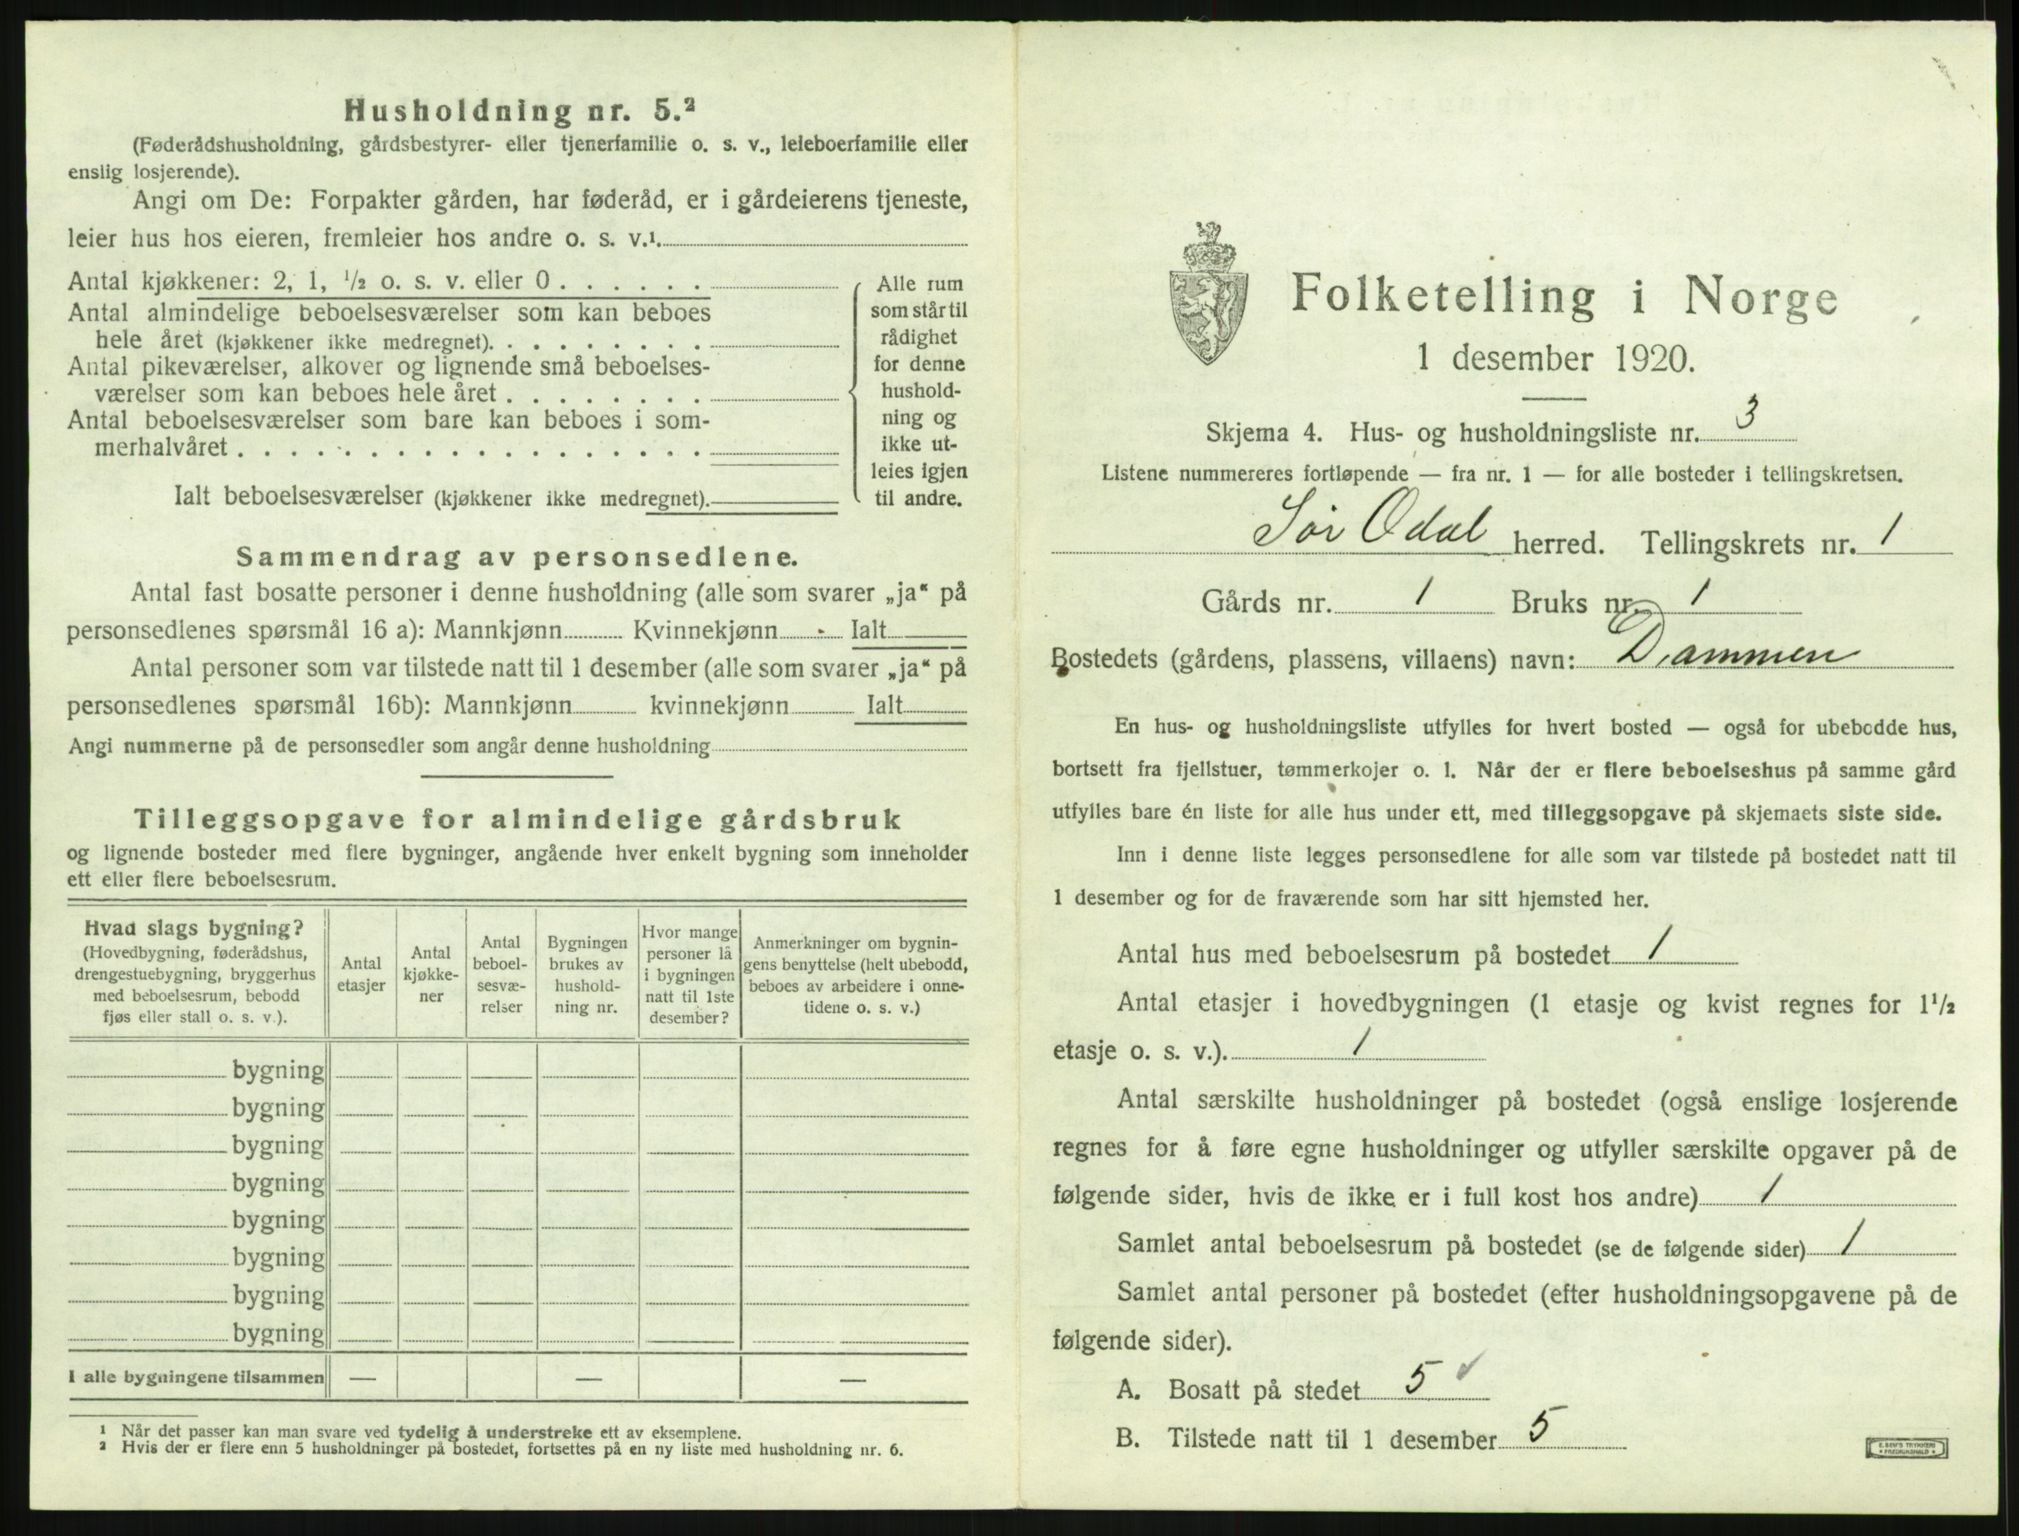 Husholdning nr. 5.²
(Føderådshusholdning, gårdsbestyrer- eller tjenerfamilie o. s. v., leieboerfamilie eller
enslig losjerende).
Angi om De: Forpakter gården, har føderåd, er i gårdeierens tjeneste,
leier hus hos eieren, fremleier hos andre o. s. v.¹.
Antal kjøkkener: 2, 1, ½ o. s. v. eller 0 . . . . . .
Antal almindelige beboelsesværelser som kan beboes
hele året (kjøkkener ikke medregnet). . . . . . . . .
Antal pikeværelser, alkover og lignende små beboelses-
værelser som kan beboes hele året . . . . . . . .
Antal beboelsesværelser som bare kan beboes i som-
merhalvåret . . . . . . . . . . . . . . . . . .
Ialt beboelsesværelser (kjøkkener ikke medregnet).
Alle rum
som står til
rådighet
for denne
hushold-
ning og
ikke ut-
leies igjen
til andre.
Sammendrag av personsedlene.
Antal fast bosatte personer i denne husholdning (alle som svarer „ja“ på
personsedlenes spørsmål 16 a): Mannkjønn Kvinnekjønn Ialt
Antal personer som var tilstede natt til 1 desember (alle som svarer „ja“ på
personsedlenes spørsmål 16b): Mannkjønn kvinnekjønn Ialt
Angi nummerne på de personsedler som angår denne husholdning
Tilleggsopgave for almindelige gårdsbruk
og lignende bosteder med flere bygninger, angående hver enkelt bygning som inneholder
ett eller flere beboelsesrum.
Hvad slags bygning?
(Hovedbygning, føderådshus,
drengestuebygning, bryggerhus
med beboelsesrum, bebodd
fjøs eller stall o. s. v.).
Antal
etasjer
Antal
kjøkke-
ner
Antal
beboel-
sesvæ-
relser
Bygningen
brukes av
hushold-
ning nr.
Hvor mange
personer lå
i bygningen
natt til 1ste
desember?
Anmerkninger om bygnin-
gens benyttelse (helt ubebodd,
beboes av arbeidere i onne-
tidene o. s. v.)
bygning
bygning
bygning
bygning
bygning
bygning
bygning
bygning
I alle bygningene tilsammen — — —
¹ Når det passer kan man svare ved tydelig å understreke ett av eksemplene.
² Hvis der er flere enn 5 husholdninger på bostedet, fortsettes på en ny liste med husholdning nr. 6.
Folketelling i Norge
1 desember 1920.
Skjema 4. Hus- og husholdningsliste nr. 3
Listene nummereres fortløpende — fra nr. 1 — for alle bosteder i tellingskretsen.
Sør Odal herred. Tellingskrets nr. 1
Gårds nr. 1 Bruks nr. 1
Bostedets (gårdens, plassens, villaens) navn: Dammen
En hus- og husholdningsliste utfylles for hvert bosted — også for ubebodde hus,
bortsett fra fjellstuer, tømmerkojer o. l. Når der er flere beboelseshus på samme gård
utfylles bare én liste for alle hus under ett, med tilleggsopgave på skjemaets siste side.
Inn i denne liste legges personsedlene for alle som var tilstede på bostedet natt til
1 desember og for de fraværende som har sitt hjemsted her.
Antal hus med beboelsesrum på bostedet 1
Antal etasjer i hovedbygningen (1 etasje og kvist regnes for 1½
etasje o. s. v.). 1
Antal særskilte husholdninger på bostedet (også enslige losjerende
regnes for å føre egne husholdninger og utfyller særskilte opgaver på de
følgende sider, hvis de ikke er i full kost hos andre) 1
Samlet antal beboelsesrum på bostedet (se de følgende sider) 1
Samlet antal personer på bostedet (efter husholdningsopgavene på de
følgende sider).
A. Bosatt på stedet 5 ✓
B. Tilstede natt til 1 desember 5